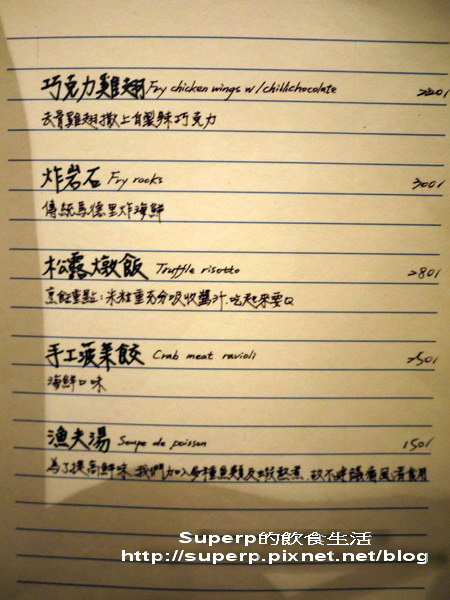 巧克力雞翅 Fry chicken wings w/chillichocolate 220/
去骨雞翅撒上自製辣巧克力
炸岩石 Fry rocks 300/
傳統馬德里炸海鮮
松露燉飯 Truffle risotto 280/
烹飪重點:米粒重充分吸收醬汁,吃起來要Q
手工菠菜餃 Crab meat ravioli 250/
海鮮口味
漁夫湯 Soupe de poisson 150/
為了提高鮮味,我們加入多種魚類及蝦熬煮,故不建議痛風者食用
Superp的飲食生活
http://superp.pixnet.net/blog